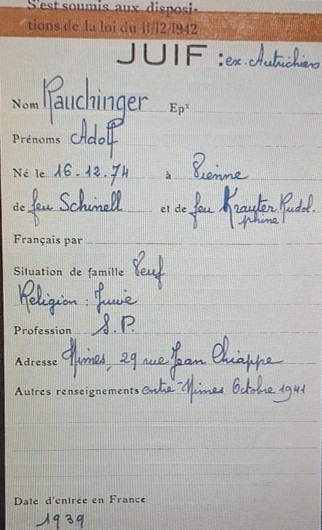 S'est soumis aux disposi-
tions de la loi du 11/12/1942
JUIF : ex. Autrichiens
Nom Rauchinger Epx
Prénoms Adolf
Né le 16.12.74 à Vienne
de feu Schinell et de feu Krauter Rudol.
phine
Français par
Situation de famille Veuf
Religion : Juive
Profession S.P.
Adresse Nîmes, 29 rue Jean Chiappe
Autres renseignements entré Nîmes Octobre 1941
Date d'entrée en France
1939